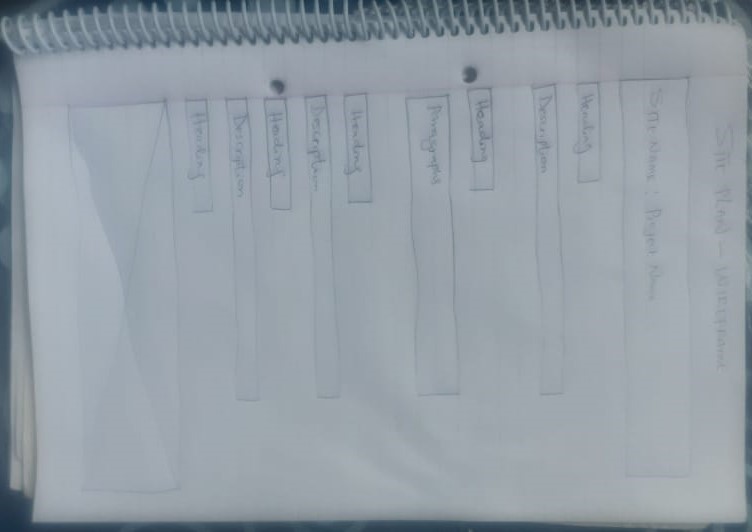 SITE PLAN - WIREFRAME
Site Name : Project Name
Heading
Description
Heading
Paragraphs
Heading
Description
Heading
Description
Heading